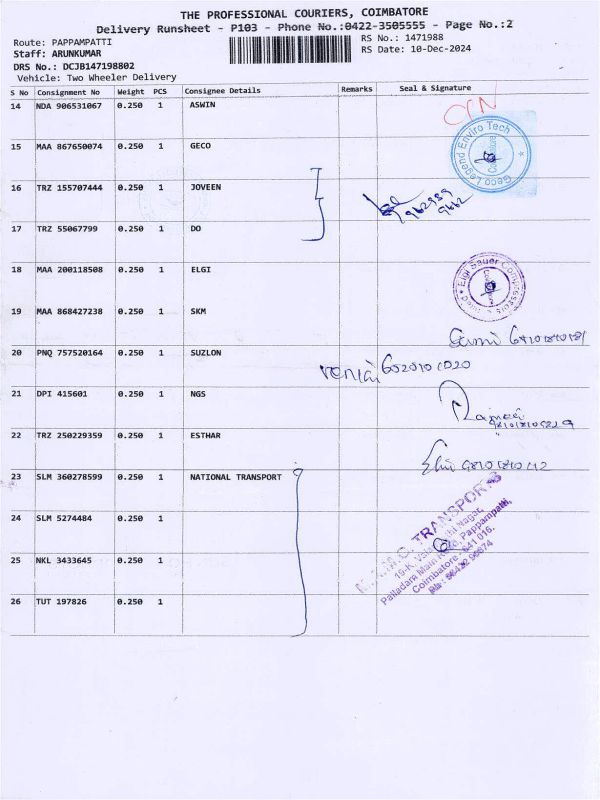 THE PROFESSIONAL COURIERS, COIMBATORE
Delivery Runsheet - P103 - Phone No.:0422-3505555 - Page No.:2
Route: PAPPAMPATTI RS No.: 1471988
Staff: ARUNKUMAR RS Date: 10-Dec-2024
DRS No.: DCJB147198802
Vehicle: Two Wheeler Delivery
S No Consignment No Weight PCS Consignee Details Remarks Seal & Signature
14 NDA 906531067 0.250 1 ASWIN
Geco Legend Enviro Tech
Coimbatore
15 MAA 867650074 0.250 1 GECO
16 TRZ 155707444 0.250 1 JOVEEN
17 TRZ 55067799 0.250 1 DO
18 MAA 200118508 0.250 1 ELGI
Elgi Sauer Compressors Limited
19 MAA 868427238 0.250 1 SKM
20 PNQ 757520164 0.250 1 SUZLON
21 DPI 415601 0.250 1 NGS
22 TRZ 250229359 0.250 1 ESTHAR
23 SLM 360278599 0.250 1 NATIONAL TRANSPORT
24 SLM 5274484 0.250 1
25 NKL 3433645 0.250 1
26 TUT 197826 0.250 1
TRANSPORTS
Nagar,
Palladam Main Road, Pappampatti,
Coimbatore - 641 016.